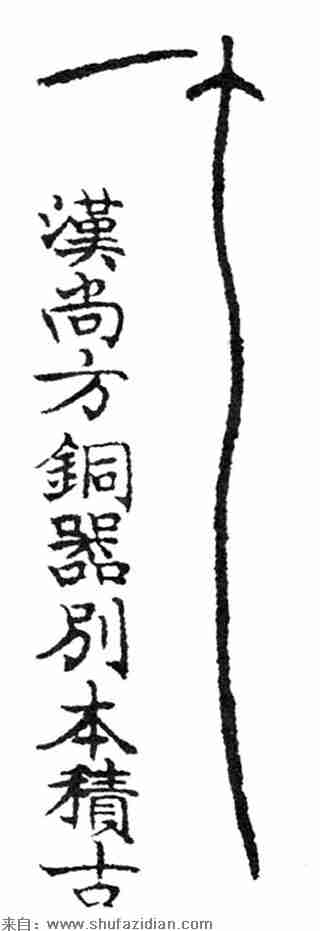 一漢尚方銅器別本積古
来自：www.shufazidian.com